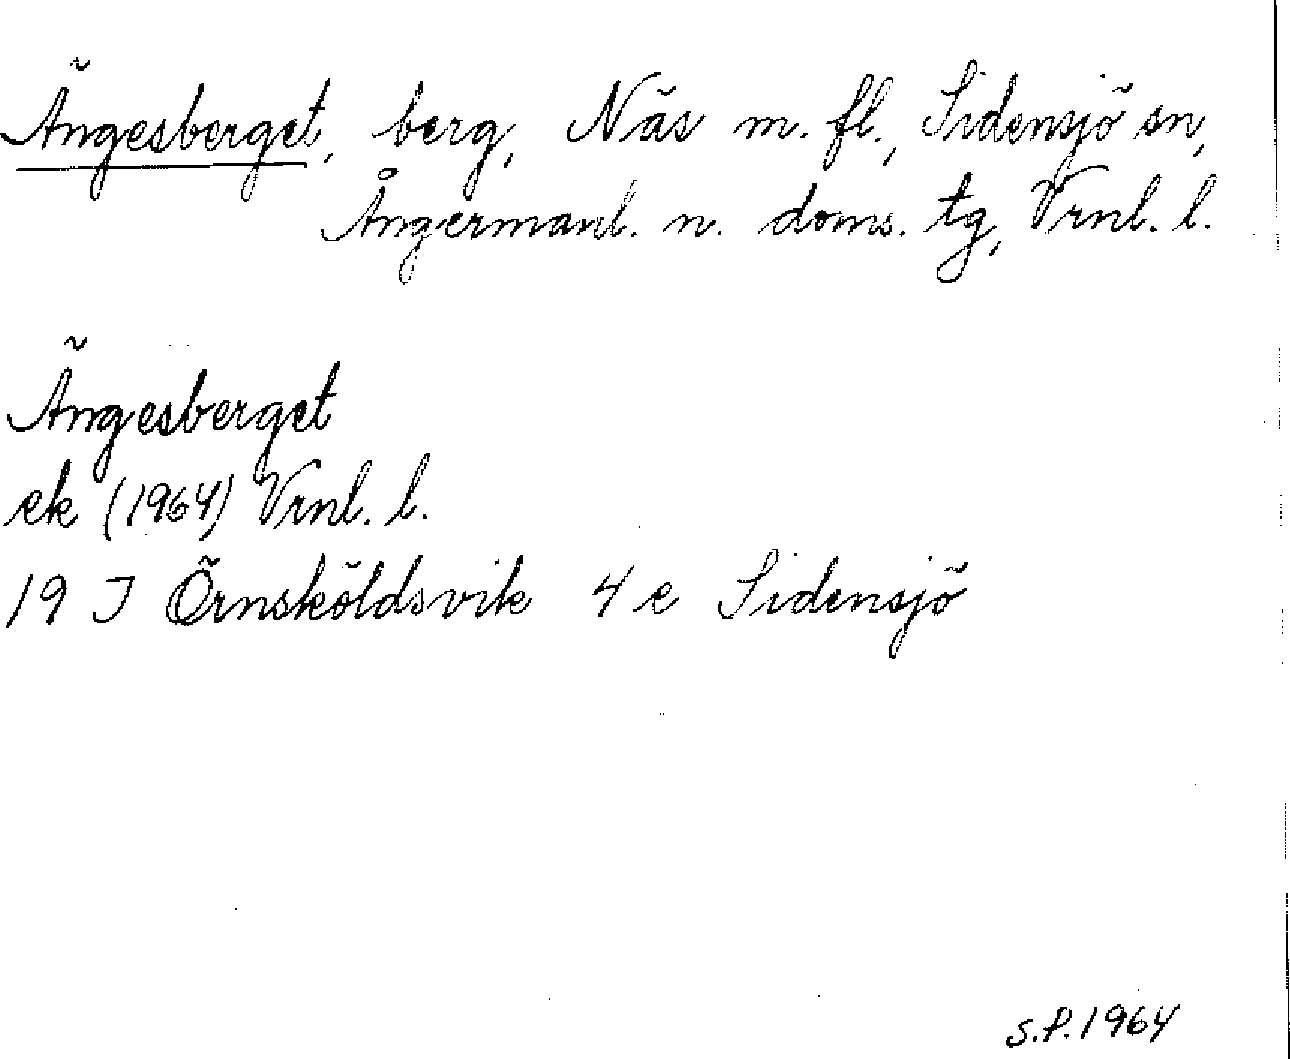 Ängesberget, berg, Näs m. fl., Sidensjö sn,
Ångermanl. n. doms. tg, Vrnl. l.
Ängesberget
ek (1964) Vrnl. l.
19 J Örnsköldsvik 4 e Sidensjö
S.P.1964